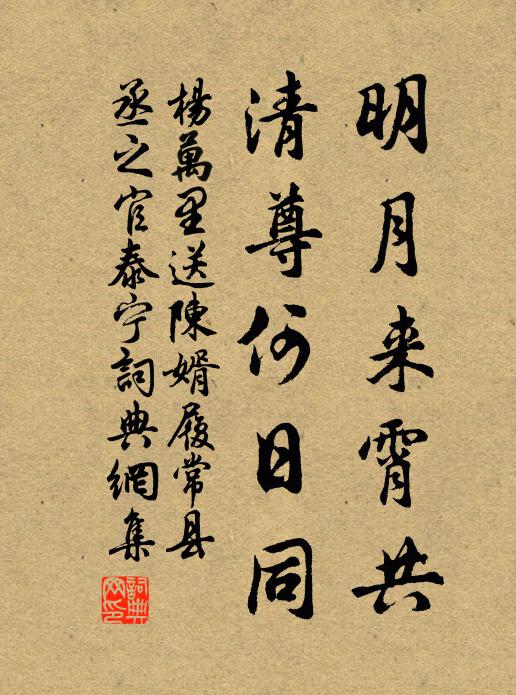 明月来霄共
清尊何日同
楊萬里送陳婿履常县
丞之官泰宁詞典網集
詞典网印